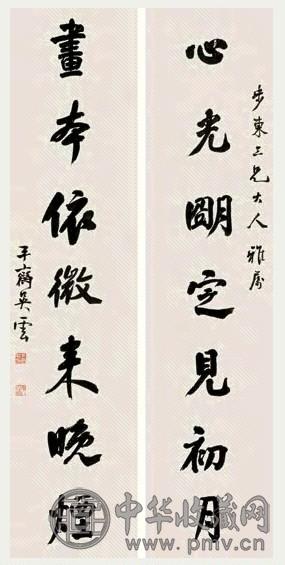 步東三兄大人雅屬
心光朙定見初月
畫本依微來晚煙
平齋吳雲
中华收藏网
www.pmv.cn